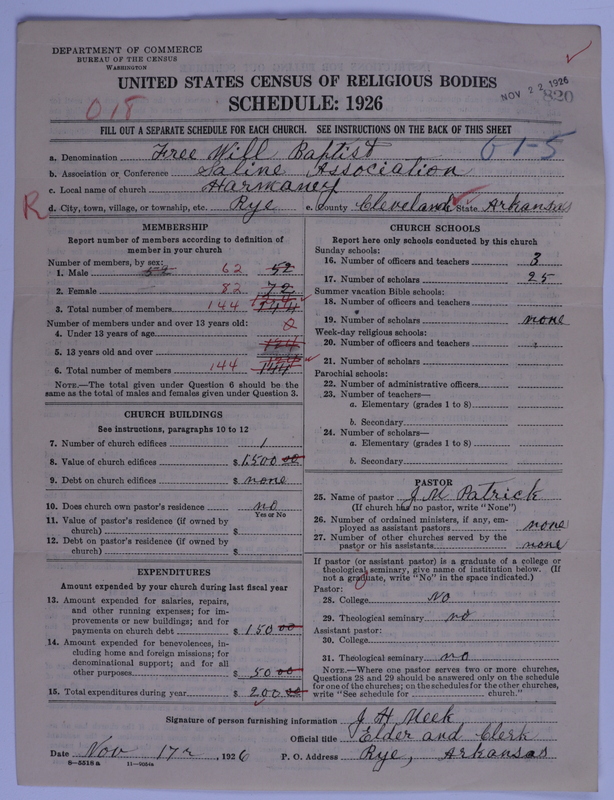 DEPARTMENT OF COMMERCE
BUREAU OF THE CENSUS
WASHINGTON
UNITED STATES CENSUS OF RELIGIOUS BODIES
SCHEDULE: 1926
NOV 22 1926
820
018
FILL OUT A SEPARATE SCHEDULE FOR EACH CHURCH. SEE INSTRUCTIONS ON THE BACK OF THIS SHEET
a. Denomination Free Will Baptist 61-5
b. Association or Conference Saline Association
c. Local name of church Harmaney
R d. City, town, village, or township, etc. Rye e. County Cleveland State Arkansas
MEMBERSHIP
Report number of members according to definition of
member in your church
Number of members, by sex:
1. Male 52 62 52
2. Female 82 72
3. Total number of members 144 124 144
Number of members under and over 13 years old:
4. Under 13 years of age 0
5. 13 years old and over 124
6. Total number of members 144 124 144
NOTE.—The total given under Question 6 should be the
same as the total of males and females given under Question 3.
CHURCH BUILDINGS
See instructions, paragraphs 10 to 12
7. Number of church edifices 1
8. Value of church edifices $ 1,500 00
9. Debt on church edifices $ none
10. Does church own pastor's residence no
Yes or No
11. Value of pastor's residence (if owned by
church) $
12. Debt on pastor's residence (if owned by
church) $
EXPENDITURES
Amount expended by your church during last fiscal year
13. Amount expended for salaries, repairs,
and other running expenses; for im-
provements or new buildings; and for
payments on church debt $ 150 00
14. Amount expended for benevolences, in-
cluding home and foreign missions; for
denominational support; and for all
other purposes $ 50 00
15. Total expenditures during year $ 200 00
CHURCH SCHOOLS
Report here only schools conducted by this church
Sunday schools:
16. Number of officers and teachers 3
17. Number of scholars 25
Summer vacation Bible schools:
18. Number of officers and teachers
19. Number of scholars none
Week-day religious schools:
20. Number of officers and teachers
21. Number of scholars
Parochial schools:
22. Number of administrative officers
23. Number of teachers—
a. Elementary (grades 1 to 8)
b. Secondary
24. Number of scholars—
a. Elementary (grades 1 to 8)
b. Secondary
PASTOR
25. Name of pastor J. M. Patrick
(If church has no pastor, write "None")
26. Number of ordained ministers, if any, em-
ployed as assistant pastors none
27. Number of other churches served by the
pastor or his assistants none
If pastor (or assistant pastor) is a graduate of a college or
theological seminary, give name of institution below. (If
not a graduate, write "No" in the space indicated.)
Pastor:
28. College No
29. Theological seminary no
Assistant pastor:
30. College
31. Theological seminary no
NOTE.—Where one pastor serves two or more churches,
Questions 28 and 29 should be answered only on the schedule
for one of the churches; on the schedules for the other churches,
write "See schedule for church."
Signature of person furnishing information J H Meek
Official title Elder and Clerk
Date Nov 17, 1926 P. O. Address Rye, Arkansas
8—5518 a 11—9054a